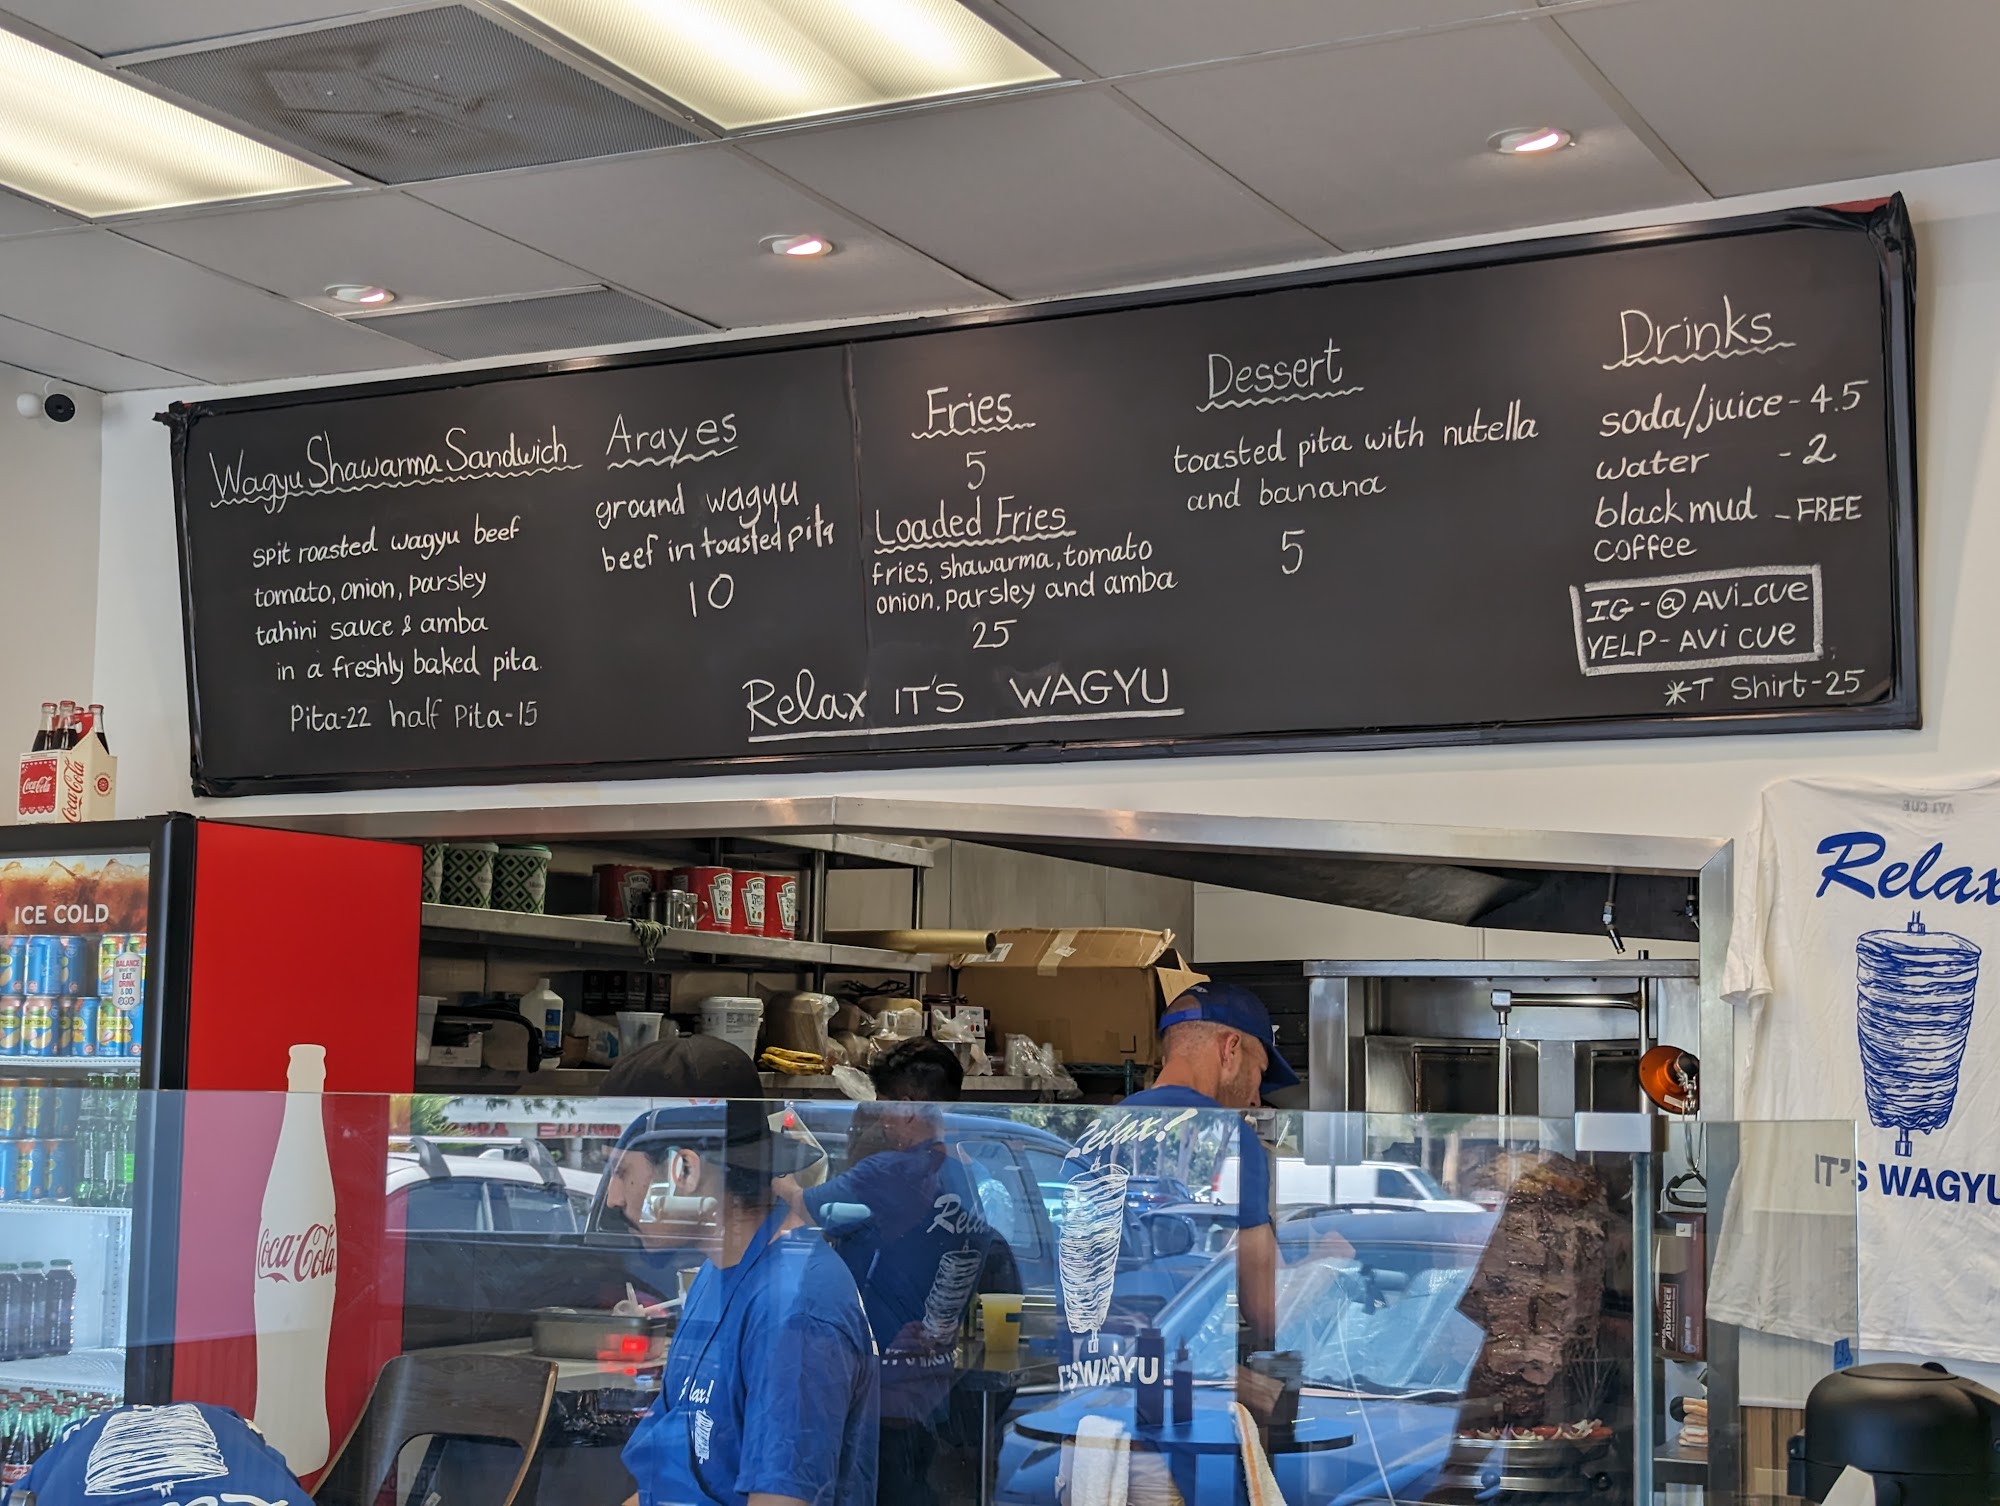 Wagyu Shawarma Sandwich
spit roasted wagyu beef
tomato, onion, parsley
tahini sauce & amba
in a freshly baked pita
Pita-22 half Pita-15
Arayes
ground wagyu
beef in toasted pita
10
Fries
5
Loaded Fries
fries, shawarma, tomato
onion, parsley and amba
25
Relax IT'S WAGYU
Dessert
toasted pita with nutella
and banana
5
Drinks
soda/juice - 4.5
water - 2
black mud - FREE
coffee
IG - @ AVi_CUE
YELP - AVi CUE
*T Shirt - 25
Coca-Cola
Coca-Cola
ICE COLD
BALANCE
EAT
DRINK
& DO
Coca-Cola
HEINZ
AVI CUE
Relax
IT'S WAGYU
Relax!
IT'S WAGYU
Relax